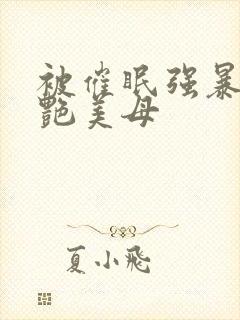 被催眠强暴
艷美母
夏小飛